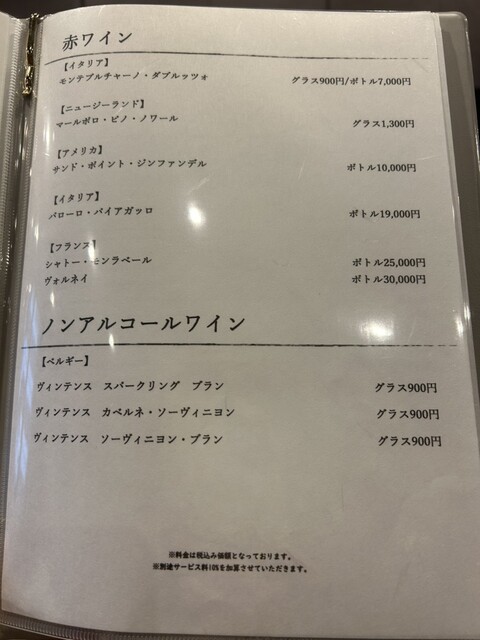 赤ワイン
【イタリア】
モンテプルチャーノ・ダブルッツォ グラス900円/ボトル7,000円
【ニュージーランド】
マールボロ・ピノ・ノワール グラス1,300円
【アメリカ】
サンド・ポイント・ジンファンデル ボトル10,000円
【イタリア】
バローロ・パイアガッロ ボトル19,000円
【フランス】
シャトー・モンラベール ボトル25,000円
ヴォルネイ ボトル30,000円
ノンアルコールワイン
【ベルギー】
ヴィンテンス スパークリング ブラン グラス900円
ヴィンテンス カベルネ・ソーヴィニヨン グラス900円
ヴィンテンス ソーヴィニヨン・ブラン グラス900円
※料金は税込み価額となっております。
※別途サービス料10%を加算させていただきます。